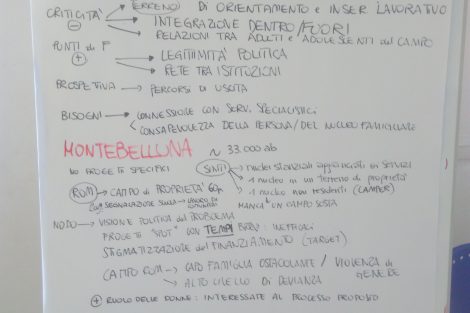 CRITICITÀ TERRENO DI ORIENTAMENTO e INSER LAVORATIVO
INTEGRAZIONE DENTRO/FUORI
RELAZIONI TRA ADULTI e ADOLESCENTI del CAMPO
PUNTI di F + LEGITTIMITÀ POLITICA
RETE TRA ISTITUZIONI
PROSPETTIVA → PERCORSI DI USCITA
BISOGNI → CONNESSIONE CON SERV. SPECIALISTICI
CONSAPEVOLEZZA DELLA PERSONA/DEL NUCLEO FAMIGLIARE
MONTEBELLUNA ~ 33.000 ab
NO PROGETTI SPECIFICI
SINTI nuclei stanziali agganciati ai Servizi
1 nucleo in un terreno di proprietà
1 nucleo non residenti (CAMPER)
ROM → CAMPO DI PROPRIETÀ
SEGNALAZIONE SULLA → LAVORO DI
MANCA UN CAMPO SOSTA
NODO → VISIONE POLITICA del PROBLEMA
PROGETTI "SPOT" CON TEMPI BREVI: INEFFICACI
STIGMATIZZAZIONE del FINANZIAMENTO (TARGET)
CAMPO ROM → CAPO FAMIGLIA OSTACOLANTE / VIOLENZA di GENERE
ALTO LIVELLO DI DEVIANZA
+ RUOLO DELLE DONNE: INTERESSATE AL PROCESSO PROPOSTO